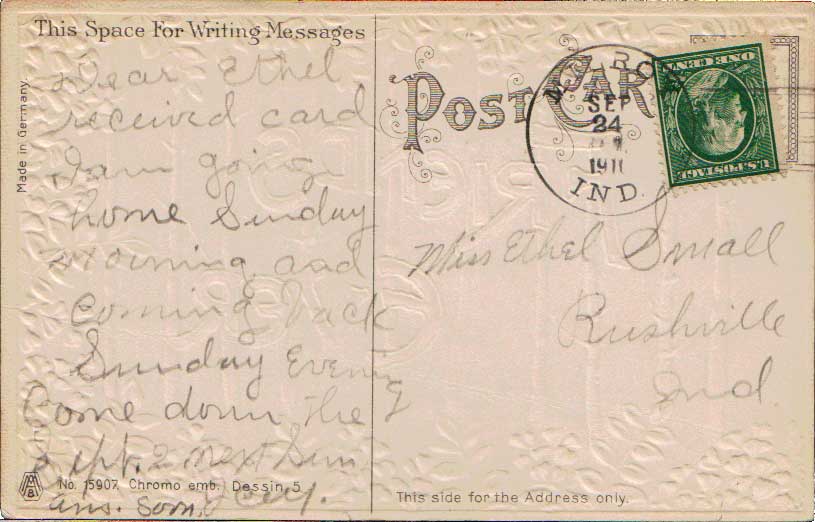 This Space For Writing Messages
Dear Ethel
received card
I am going
home Sunday
morning and
coming back
Sunday Evening
Come down the
Sept. 2 next Sun
ans. soon,
No. 15907. Chromo emb. Dessin 5
Made in Germany.
POST CARD
SEP
24
1911
IND.
ONE CENT
U.S. POSTAGE
Miss Ethel Small
Rushville
Ind
This side for the Address only.